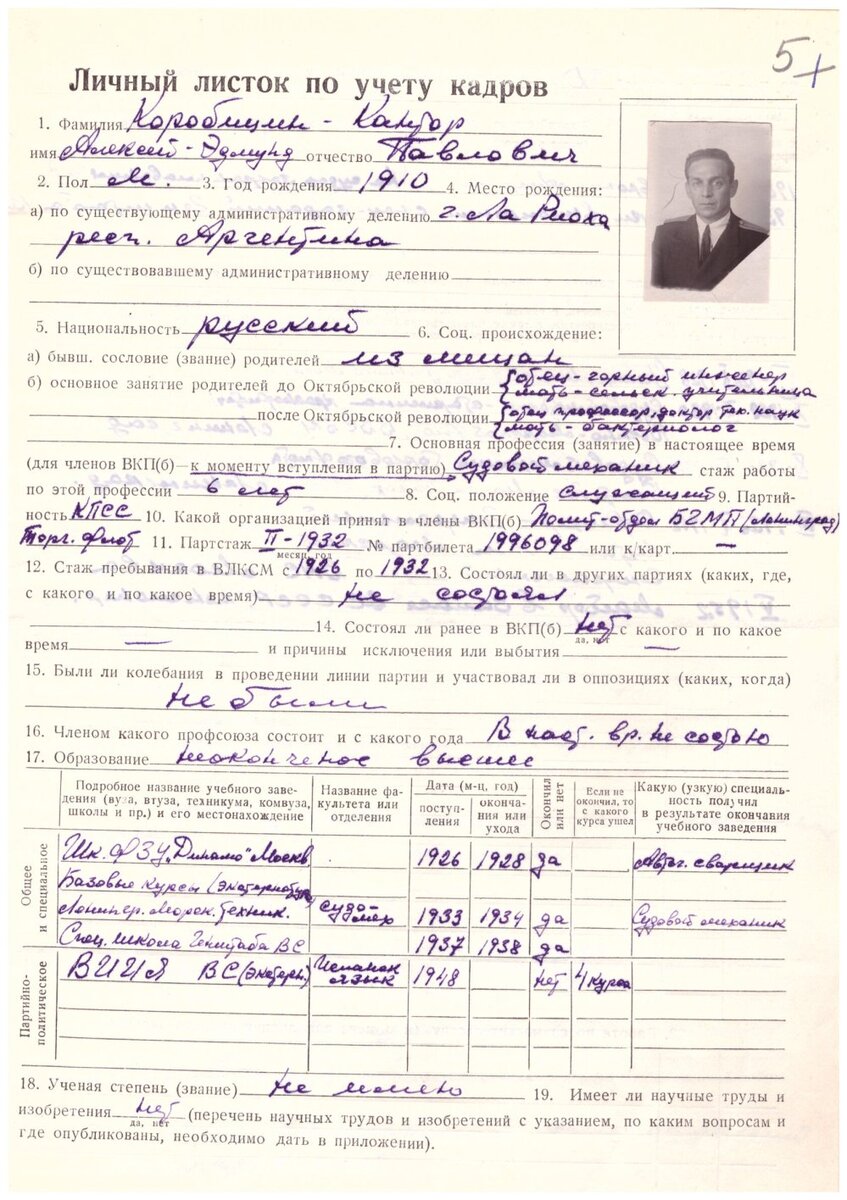 5+
Личный листок по учету кадров
1. Фамилия Коробицин-Кантор
имя Алексей-Эдмунд отчество Павлович
2. Пол М. 3. Год рождения 1910 4. Место рождения:
а) по существующему административному делению г. Ла Риоха
респ. Аргентина
б) по существовавшему административному делению
5. Национальность русский 6. Соц. происхождение:
а) бывш. сословие (звание) родителей из мещан
б) основное занятие родителей до Октябрьской революции {отец-горный инженер
{мать-сельск. учительница
после Октябрьской революции {отец профессор, доктор тех. наук
{мать-бактериолог
7. Основная профессия (занятие) в настоящее время
(для членов ВКП(б)—к моменту вступления в партию) Судовой механик стаж работы
по этой профессии 6 лет 8. Соц. положение служащий 9. Партий-
ность КПСС 10. Какой организацией принят в члены ВКП(б) Полит-отдел БГМП (Ленинград)
Торг. флот 11. Партстаж II-1932 № партбилета 1996098 или к/карт. —
месяц, год
12. Стаж пребывания в ВЛКСМ с 1926 по 1932 13. Состоял ли в других партиях (каких, где,
с какого и по какое время) не состоял
14. Состоял ли ранее в ВКП(б) нет с какого и по какое
да, нет
время — и причины исключения или выбытия —
15. Были ли колебания в проведении линии партии и участвовал ли в оппозициях (каких, когда)
не было
16. Членом какого профсоюза состоит и с какого года В наст. вр. не состою
17. Образование неоконченое высшее
Подробное название учебного заве-
дения (вуза, втуза, техникума, комвуза,
школы и пр.) и его местонахождение
Название фа-
культета или
отделения
Дата (м-ц, год)
поступ-
ления
оконча-
ния или
ухода
Окончил
или нет
Если не
окончил, то
с какого
курса ушел
Какую (узкую) специаль-
ность получил
в результате окончания
учебного заведения
Общее
и специальное
Шк. ФЗУ "Динамо" Москв 1926 1928 да Автог. сварщик
Базовые курсы
Ленингр. Морск. техник. судо-мех 1933 1934 да Судовой механик
Спец. школа Генштаба ВС 1937 1938 да
Партийно-
политическое
ВИИЯ ВС (экстерн.) Испанск язык 1948 нет 4 курса
18. Ученая степень (звание) не имею 19. Имеет ли научные труды и
изобретения нет (перечень научных трудов и изобретений с указанием, по каким вопросам и
да, нет
где опубликованы, необходимо дать в приложении).